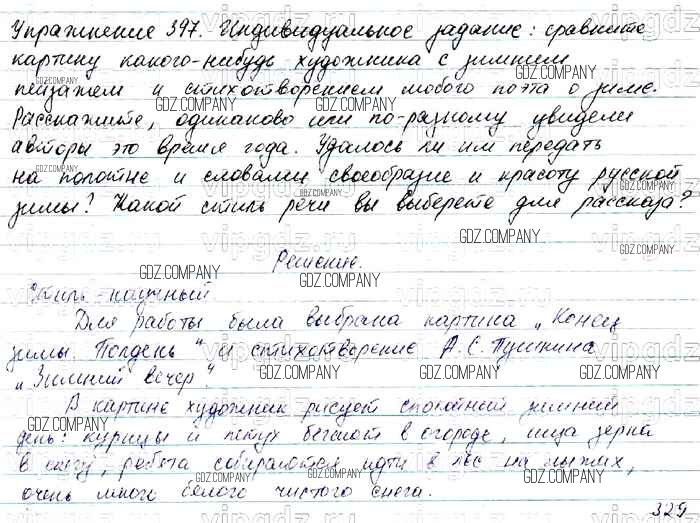 Упражнение 397. Индивидуальное задание: сравните
картину какого-нибудь художника с зимним
GDZ.COMPANY
пейзажем и стихотворением любого поэта о зиме.
GDZ.COMPANY
Расскажите, одинаково или по-разному увидели
авторы это время года. Удалось ли им передать
на полотне и словами своеобразие и красоту русской
зимы? Какой стиль речи вы выберете для рассказа?
GDZ.COMPANY
Решение.
GDZ.COMPANY
Стиль - научный.
Для работы была выбрана картина „Конец
зимы. Полдень" и стихотворение А.С. Пушкина
„Зимний вечер".
GDZ.COMPANY
В картине художник рисует спокойный зимний
день: курицы и петух бегают в огороде, ища зерна
в снегу, ребята собираются идти в лес на лыжах,
очень много белого чистого снега.
329